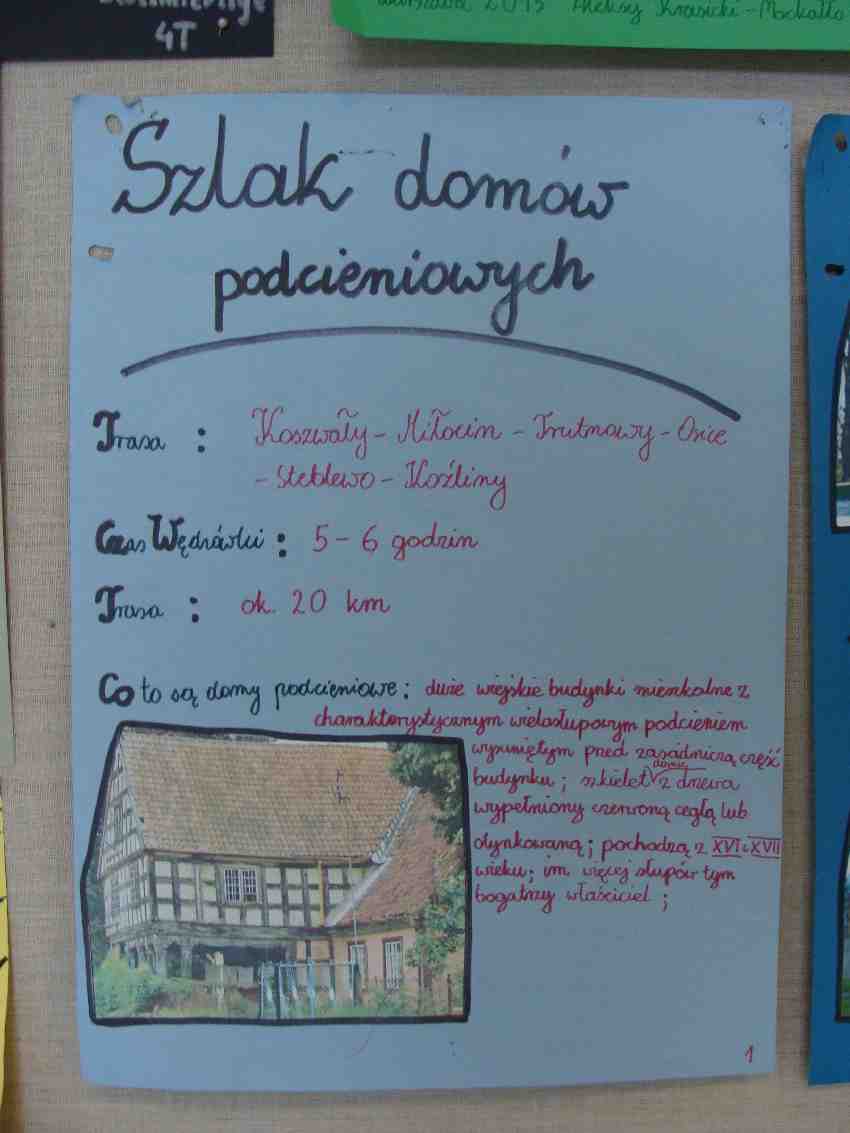 4T
Warszawa 2015 Aleksy Krasicki-Mackałło
Szlak domów
podcieniowych
Trasa : Koszwały - Miłocin - Trutnowy - Osice
- Steblewo - Koźliny
Czas Wędrówki : 5 - 6 godzin
Trasa : ok. 20 km
Co to są domy podcieniowe : duże wiejskie budynki mieszkalne z
charakterystycznym wielosłupowym podcieniem
wysuniętym przed zasadniczą część
budynku ; szkielet domu z drewna
wypełniony czerwoną cegłą lub
otynkowaną ; pochodzą z XVI i XVII
wieku ; im więcej słupów tym
bogatszy właściciel ;
1